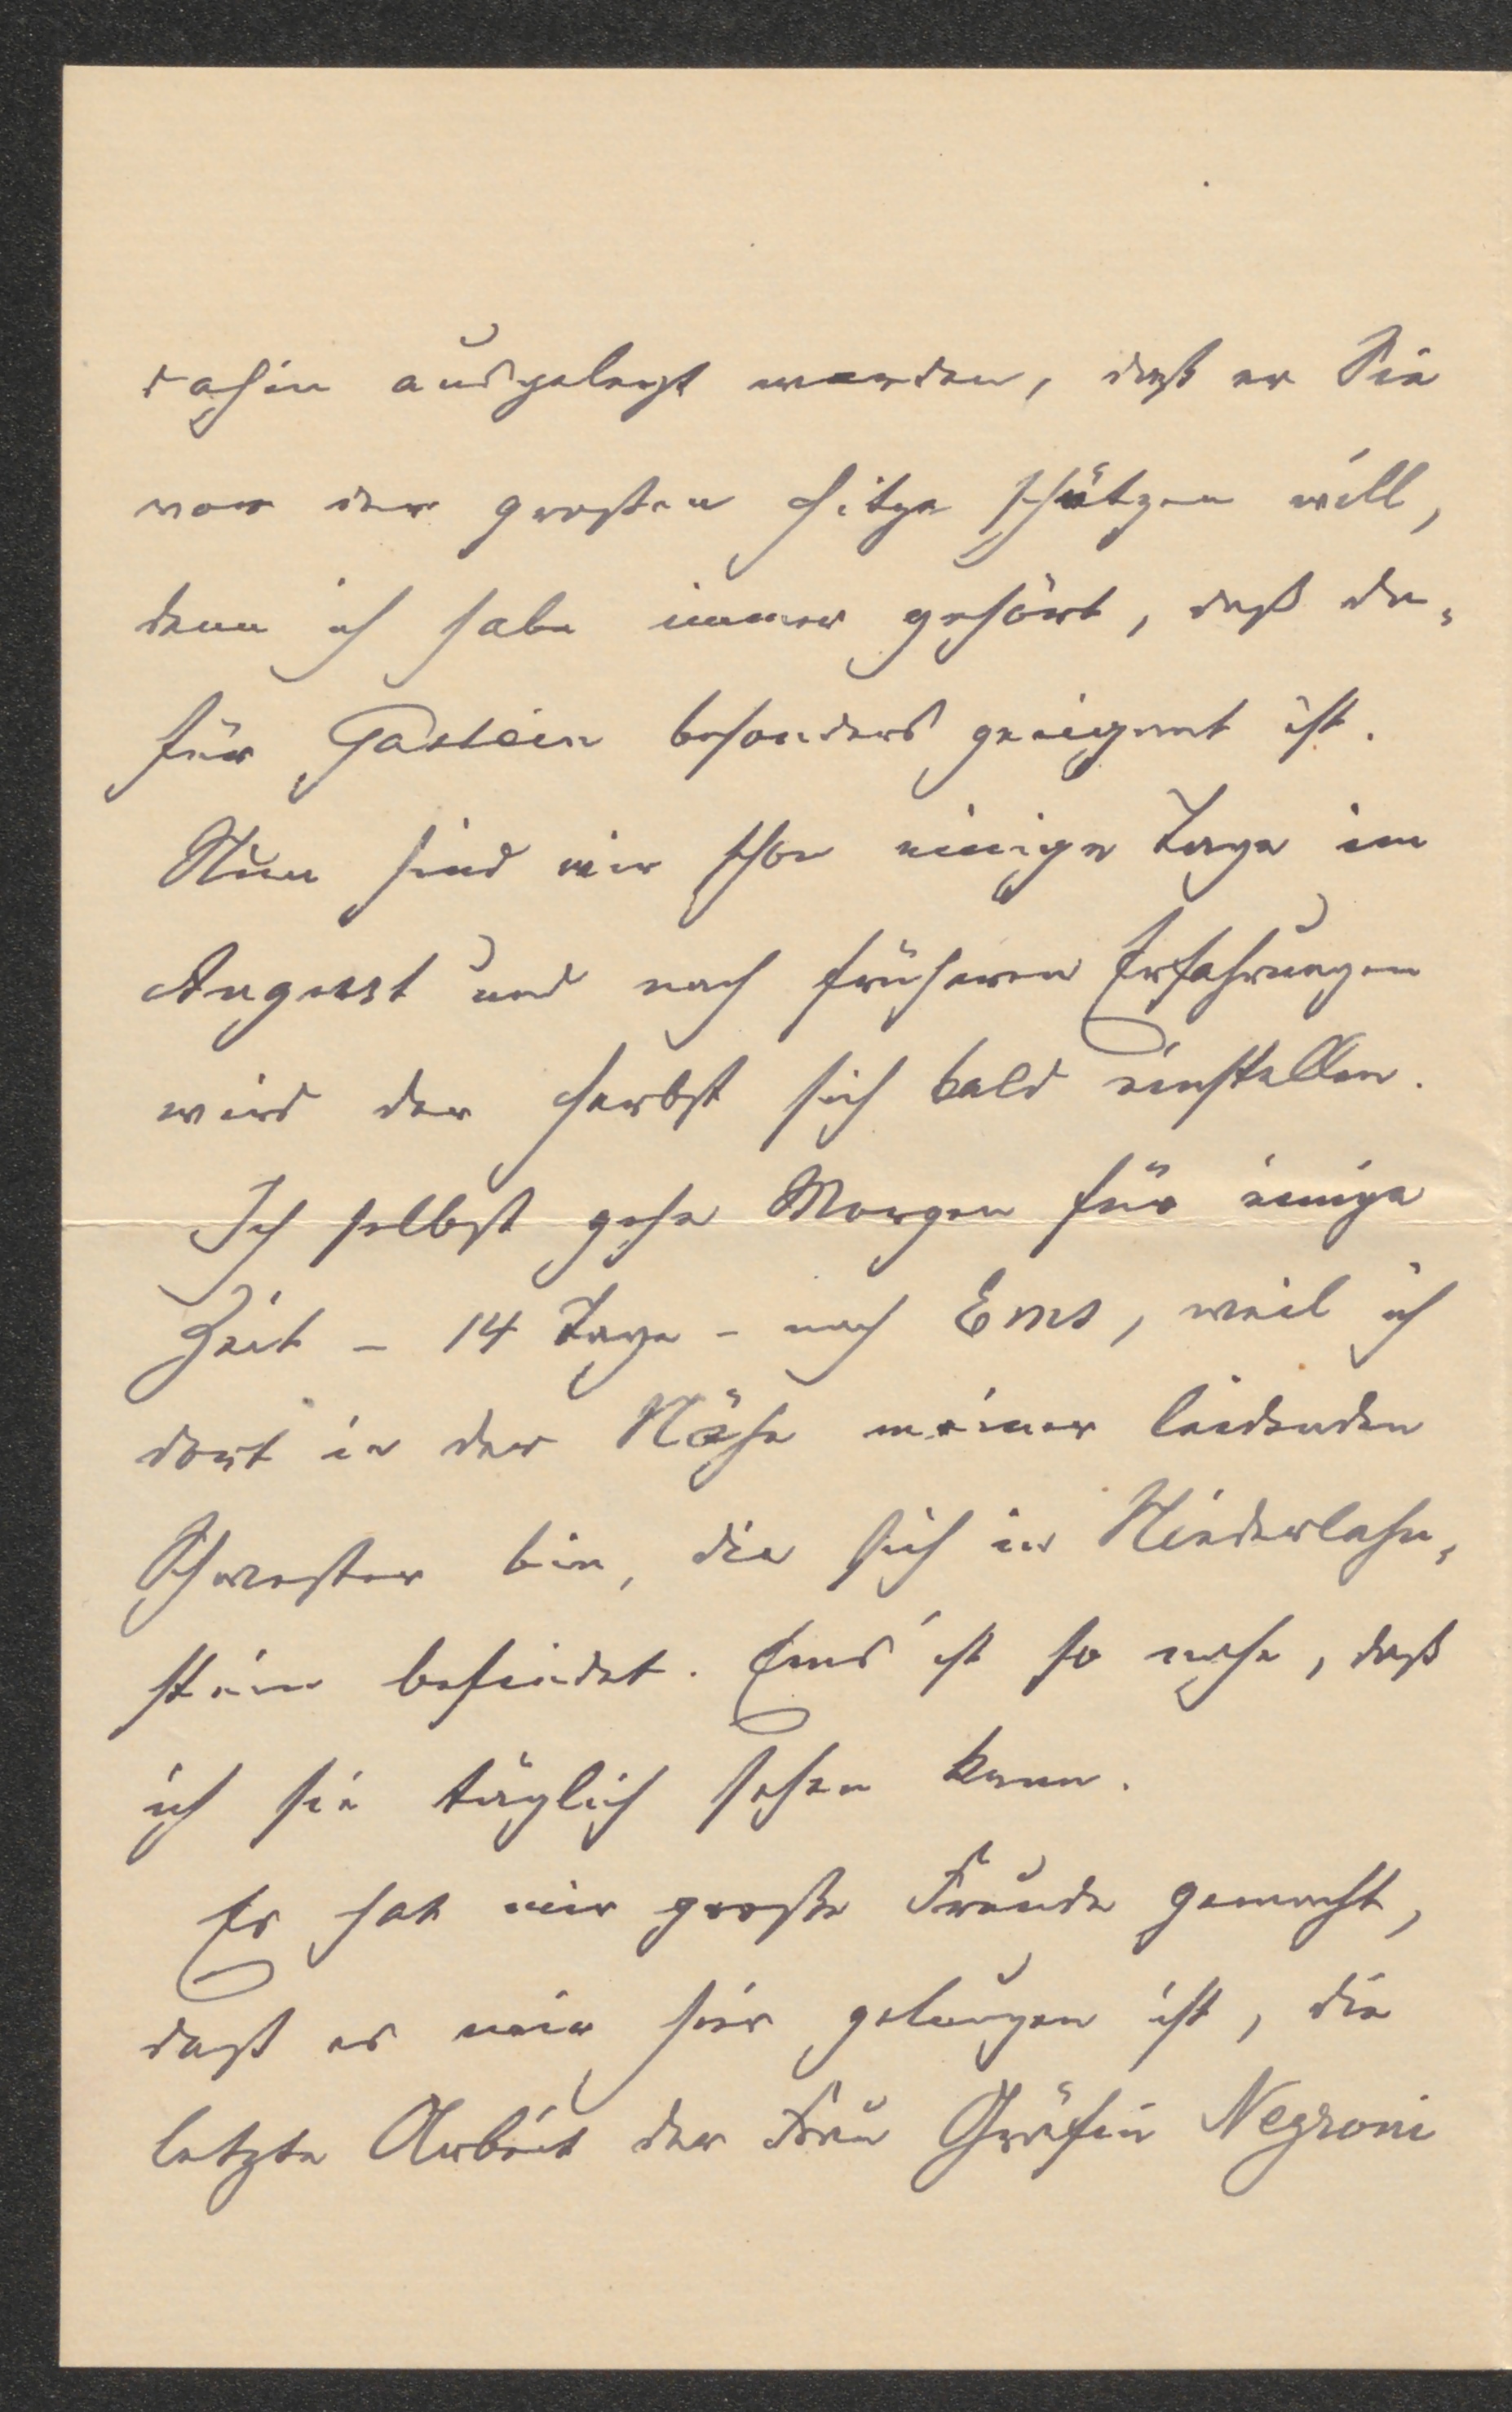 dahin ausgelegt werden, daß er Sie
vor der großen Hitze schützen will,
denn ich habe immer gehört, daß da-
für Gastein besonders geeignet ist.
Nun sind wir schon einige Tage im
August und nach früheren Erfahrungen
wird der Herbst sich bald einstellen.
Ich selbst gehe Morgen für einige
Zeit – 14 Tage – nach Ems, weil ich
dort in der Nähe meiner leidenden
Schwester bin, die sich in Niederlahn-
stein befindet. Ems ist so nahe, daß
ich sie täglich sehen kann.
Es hat mir große Freude gemacht,
daß es mir hier gelungen ist, die
letzte Arbeit der Frau Gräfin Negroni